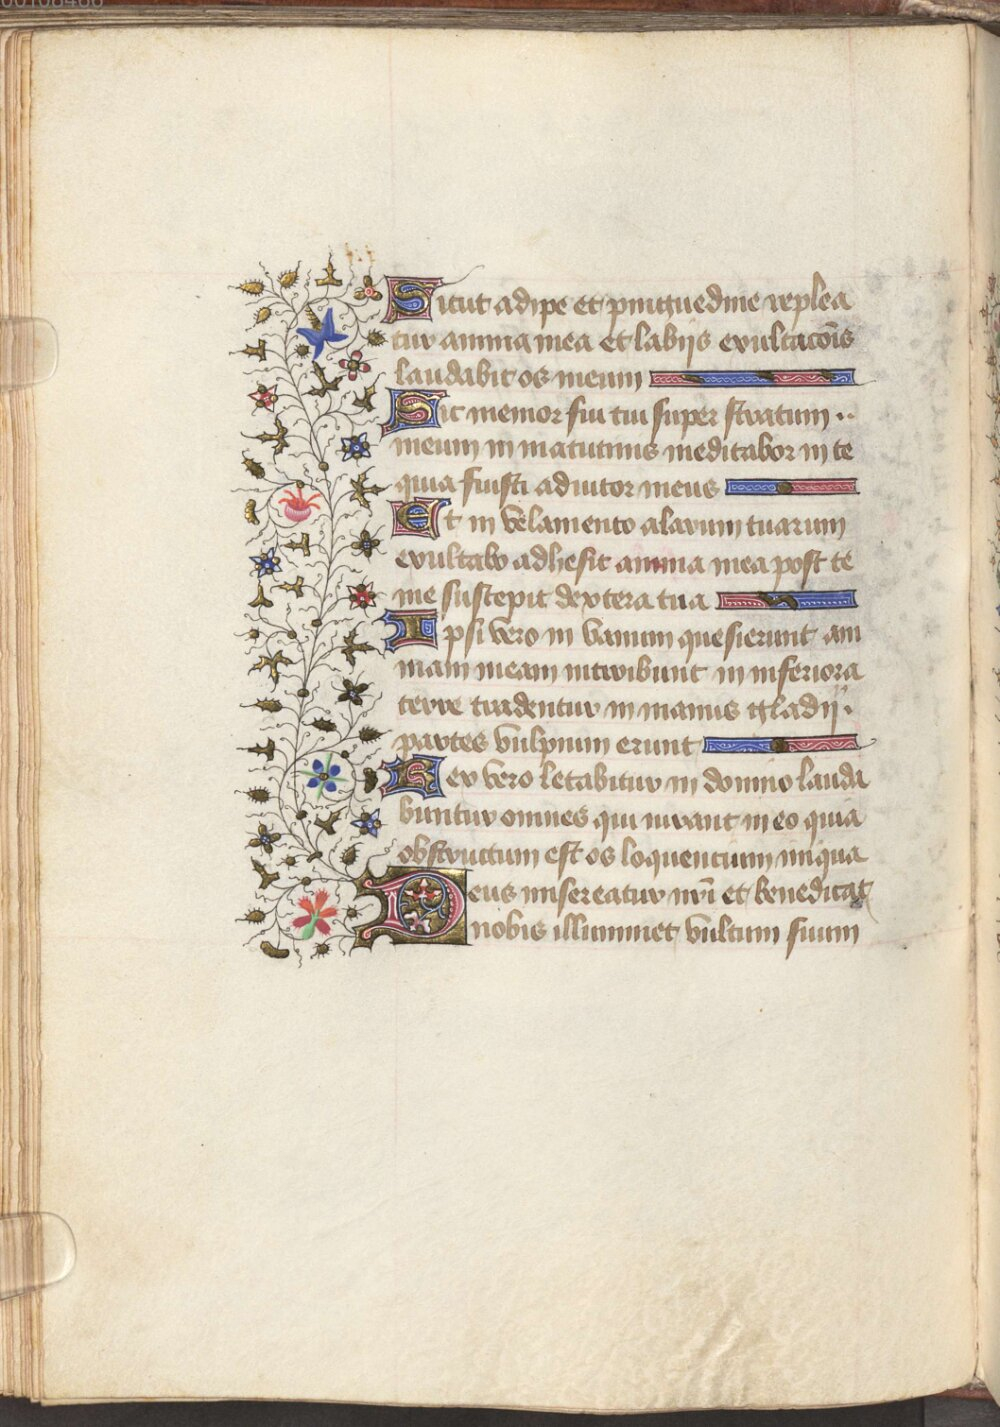 Sicut adipe et pinguedine replea
tur anima mea et labijs exultacōis
laudabit os meum
Sic memor fui tui super stratum ··
meum in matutinis meditabor in te
quia fuisti adiutor meus
Et in velamento alarum tuarum
exultabo adhesit anima mea post te
me suscepit dextera tua
Ipsi vero in vanum quesierunt ani
mam meam introibunt in inferiora
terre tradentur in manus gladij·
partes vulpium erunt
Rex vero letabitur in domino lauda
buntur omnes qui iurant in eo quia
obstructum est os loquentium iniqua
Deus misereatur nr̄i et benedicat
nobis illuminet vultum suum